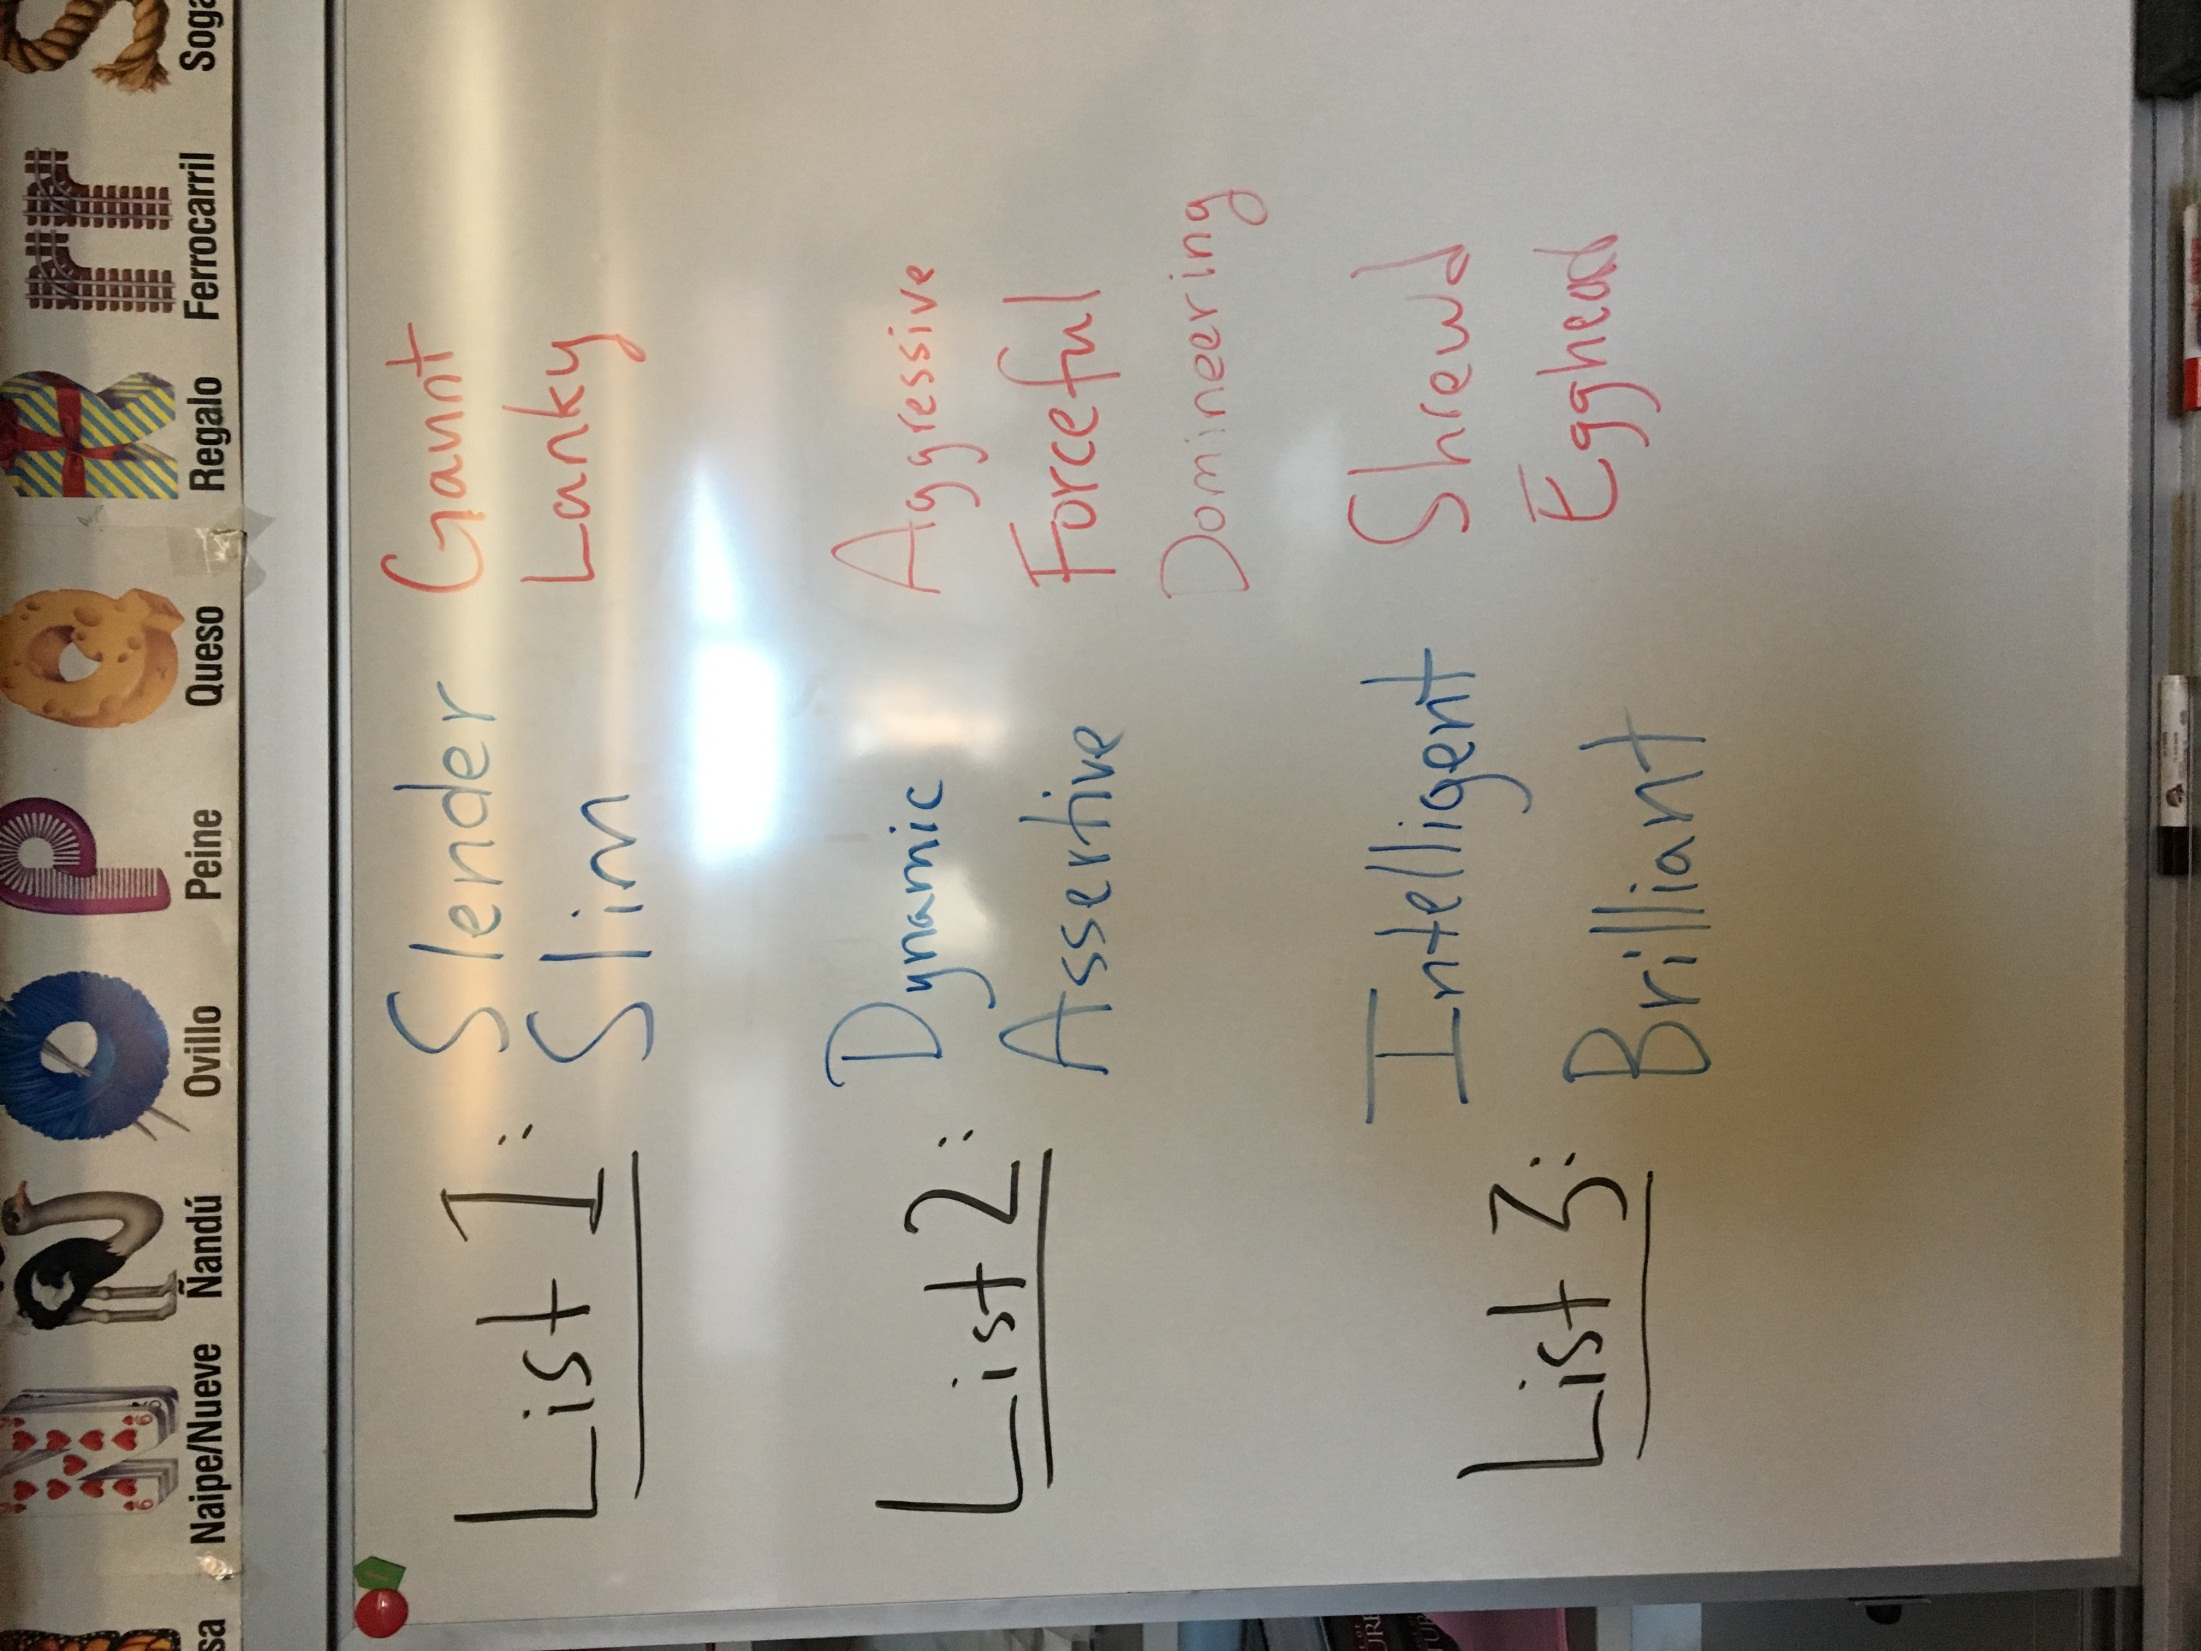 Naipe/Nueve Ñandú Ovillo Peine Queso Regalo Ferrocarril Soga
List 1: Slender Gaunt
Slim Lanky
List 2: Dynamic Aggressive
Assertive Forceful
Domineering
List 3: Intelligent Shrewd
Brilliant Egghead